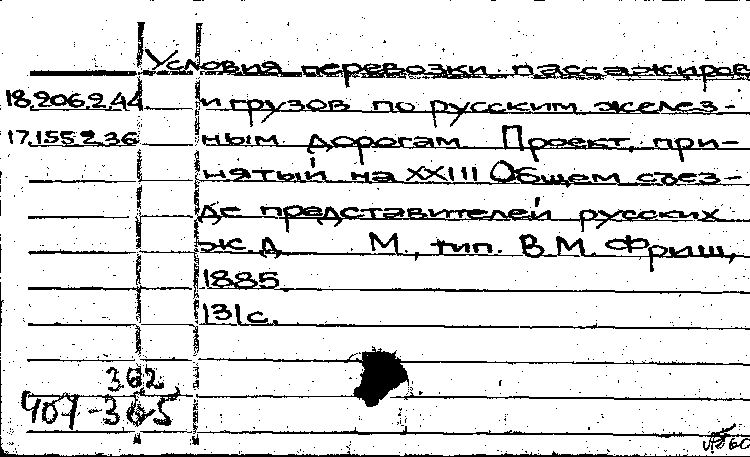 Условия перевозки пассажиров
18.206.2.44 и грузов по русским желез-
17.155.2.36 ным дорогам Проект, при-
нятый на XXIII Общем съез-
де представителей русских
ж.д. М., тип. В.М. Фриш,
1885.
131с.
362,
407-365